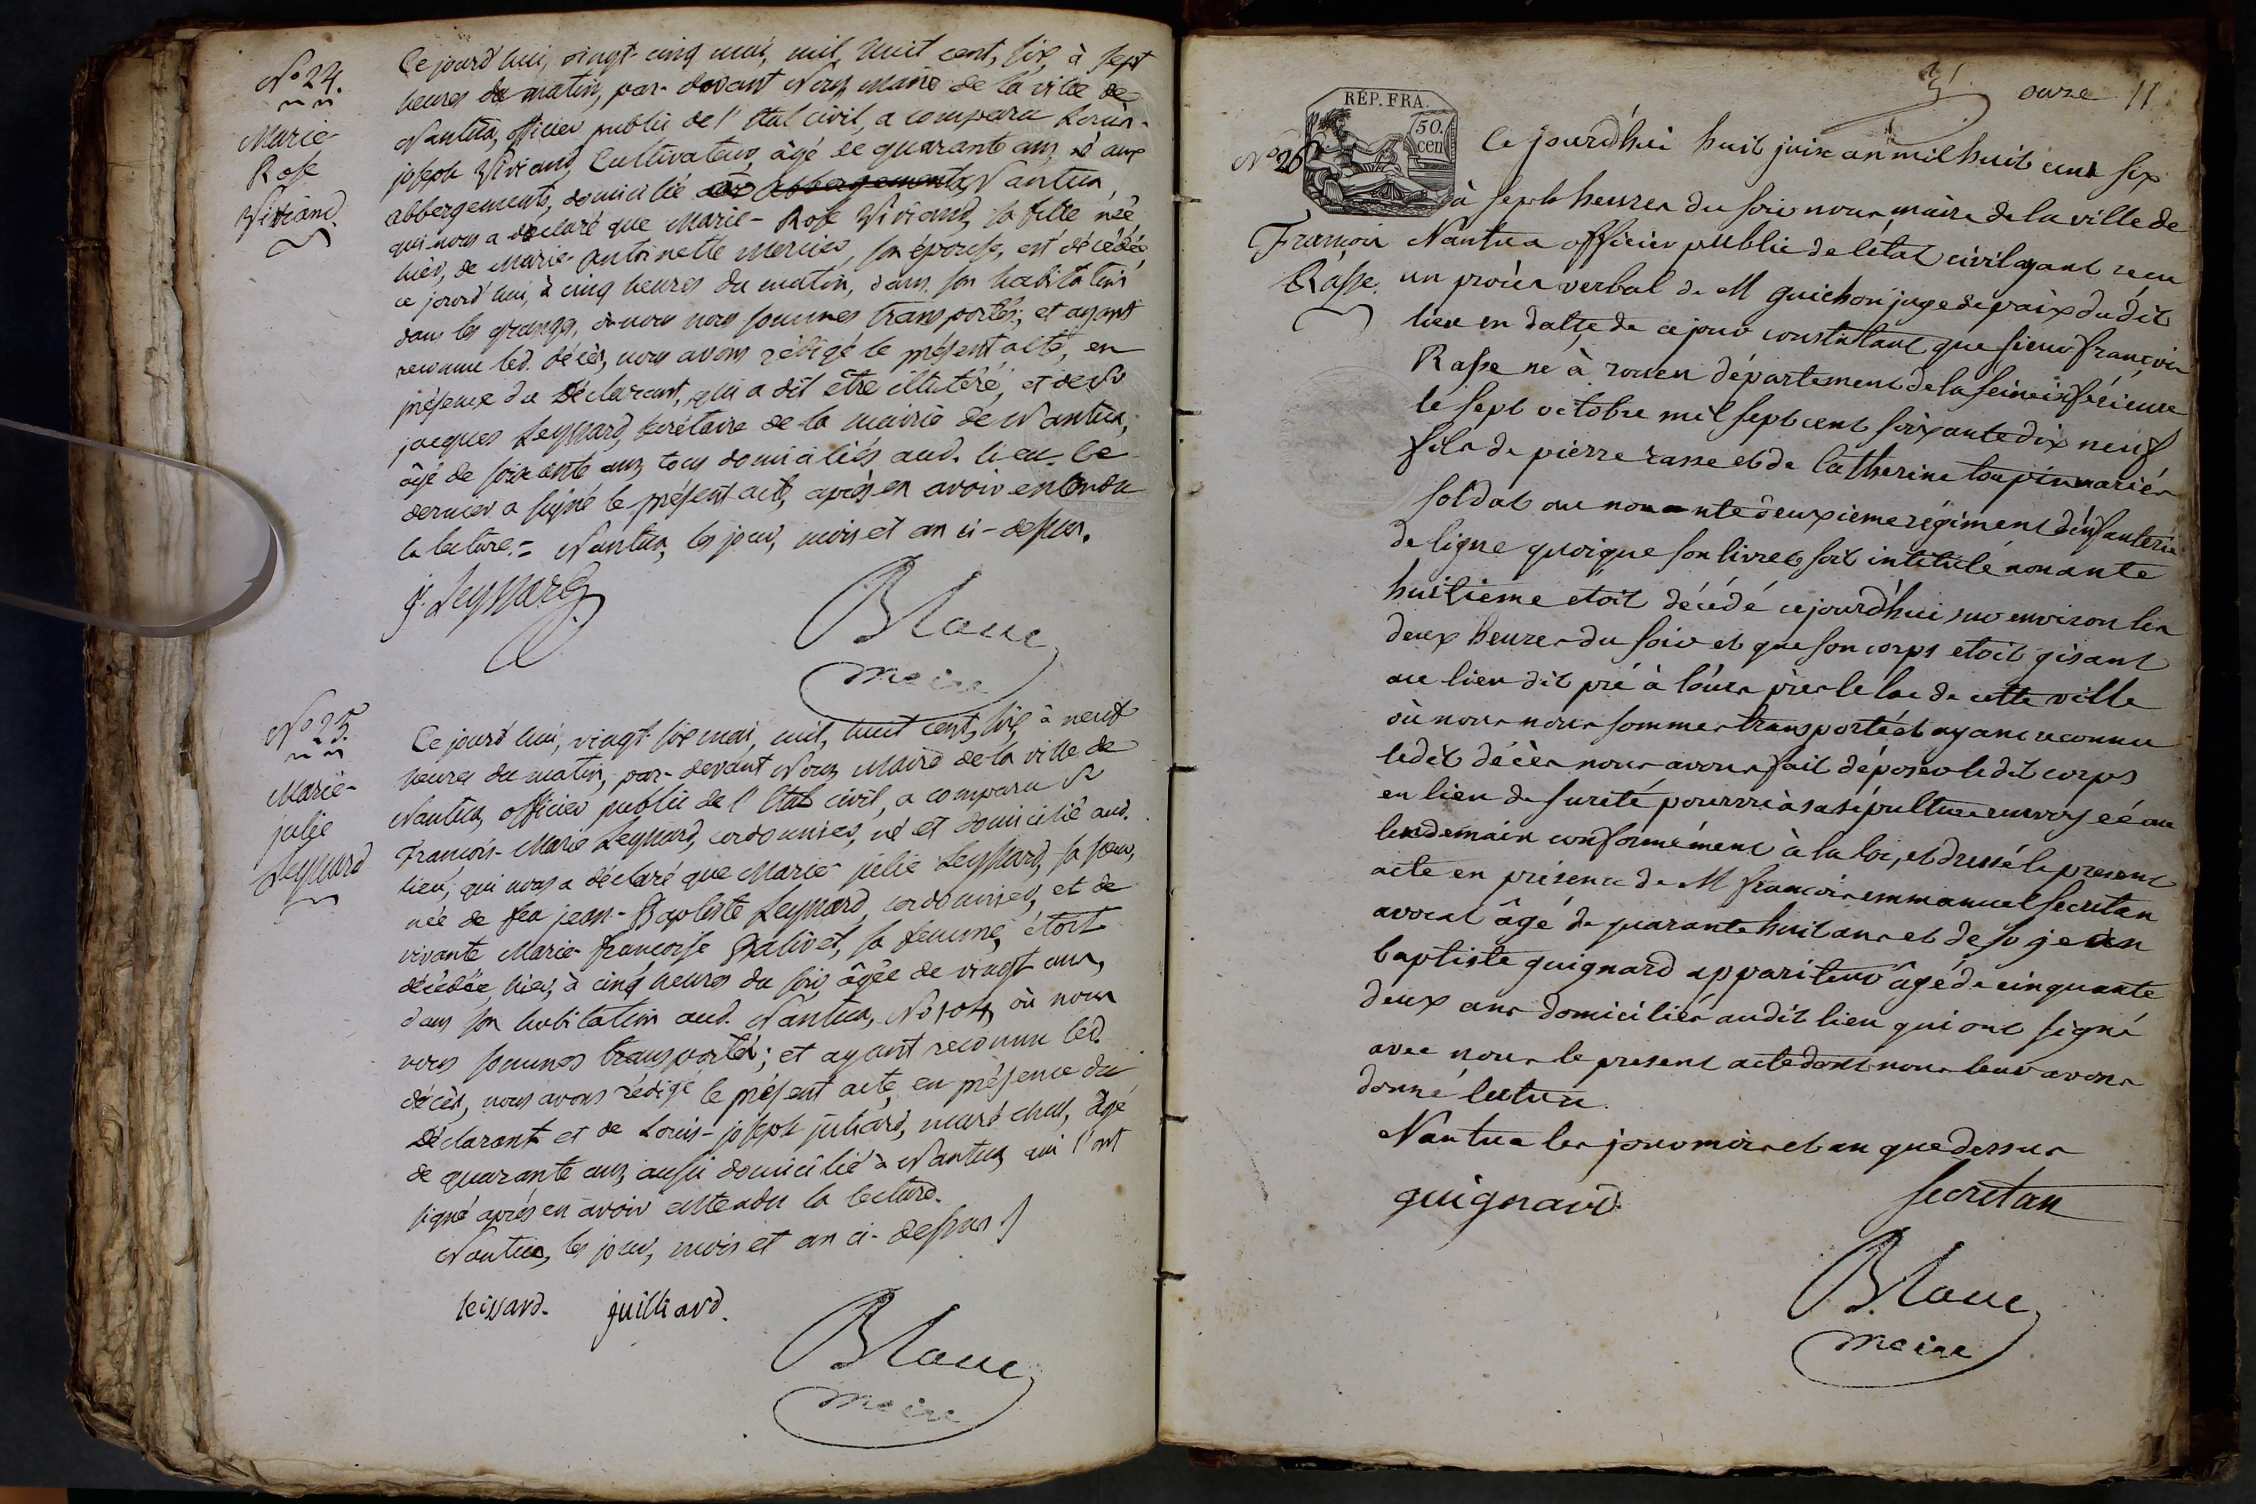 N.o 24.
Marie-
Rose
Viviand.
Ce jourd'hui, vingt-cinq mai, mil, huit cent, six, à sept
heures du matin, par-devant Nous, Maire de la ville de
Nantua, officier public de l'Etat civil, a comparu Louis-
joseph Viviand, Cultivateur, âgé de quarante ans, né aux
abbergements, domicilié aux abbergements Nantua,
qui nous a déclaré que Marie-Rose Viviand, sa fille née
hier, de Marie-Antoinette Mercier, son épouse, est décédée
ce jourd'hui, à cinq heures du matin, dans son habitation
dans les granges, où nous nous sommes transportés; et ayant
reconnu led. décès, nous avons rédigé le présent acte, en
présence du Déclarant, qui a dit être illitéré, et de So
jacques Leyssard, secrétaire de la mairie de Nantua,
âgé de soixante ans, tous domiciliés aud. lieu. Ce
dernier a signé le présent acte, après en avoir entendu
la lecture. = Nantua, les jour, mois et an ci-dessus.
J. Leyssard
Blanc
Maire
N.o 25.
Marie-
julie
Leyssard
Ce jourd'hui, vingt-six mai, mil, huit cent, six, à neuf
heures du matin, par-devant Nous, Maire de la ville de
Nantua, officier public de l'Etat civil, a comparu S
François-Marie Leyssard, cordonnier, né et domicilié aud.
lieu, qui nous a déclaré que Marie julie Leyssard, sa sœur,
née de feu jean-Baptiste Leyssard, cordonnier, et de
vivante Marie-françoise Balivet, sa femme, étoit
décédée, hier, à cinq heures du soir, âgée de vingt ans,
dans son habitation aud. Nantua, No 104, où nous
nous sommes transportés; et ayant reconnu led.
décès, nous avons rédigé le présent acte, en présence du
Déclarant et de Louis-joseph juliard, maréchal, âgé
de quarante ans, aussi domicilié à Nantua, qui l'ont
signé après en avoir entendu la lecture.
Nantua, les jour, mois et an ci-dessus
leissard. juilliard.
Blanc
Maire
onze 11
RÉP. FRA.
50.
cen
No 26
François
Rasse.
Ce jourd'hui huit juin an mil huit cent six
à sept heures du soir nous maire de la ville de
Nantua officier public de létat civil ayant reçu
un procès verbal de M guichon juge de paix du dit
lieu en datte de ce jour constatant que sieur françois
Rasse né à rouen département de la seine inférieure
le sept octobre mil sept cent soixante dix neuf
fils de pierre rasse et de Catherine toupin mariés
soldat au nonante deuxieme régiment d'infanterie
de ligne quoique son livret soit intitulé nonante
huitieme etoit décédé ce jourd'hui sur environ les
deux heures du soir et que son corps etoit gisant
au lieu dit pré à l'ours près le lac de cette ville
où nous nous sommes transporté et ayant reconnu
ledit décès nous avons fait déposer ledit corps
en lieu de sureté pourvu à sa sépulture renvoyéé au
lendemain conformément à la loi, et dressé le present
acte en présence de M françois emmanuel secretan
avocat âgé de quarante huit ans et de so jean
baptiste guignard appariteur âgé de cinquante
deux ans domiciliés audit lieu qui ont signé
avec nous le present acte dont nous leur avons
donné lecture.
Nantua les jour mois et an que dessus
guignard. secretan
Blanc
Maire